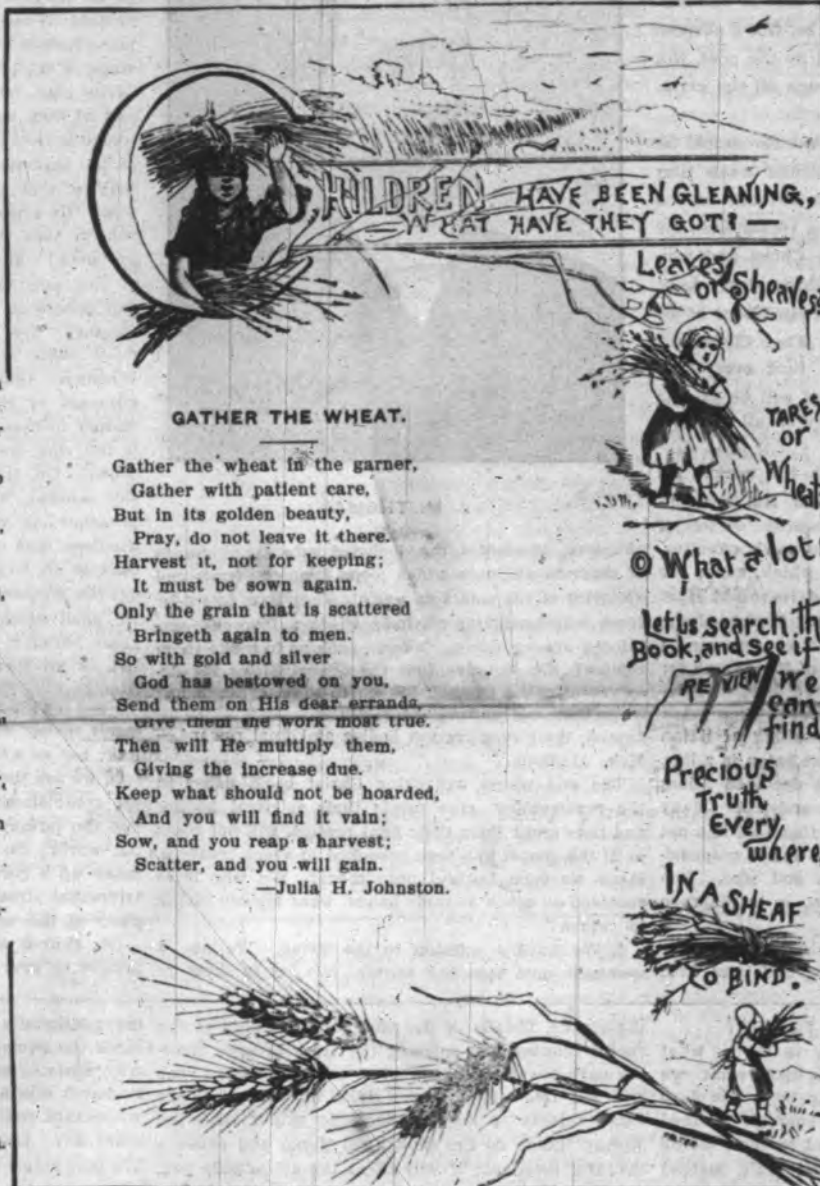 CHILDREN HAVE BEEN GLEANING,
WHAT HAVE THEY GOT?
Leaves
or Sheaves?
TARES
or
Wheat
O What a lot!
Let us search th
Book, and see if
REVIEW We
can
find
Precious
Truth
Every
where
IN A SHEAF
TO BIND.
GATHER THE WHEAT.
Gather the wheat in the garner,
Gather with patient care,
But in its golden beauty,
Pray, do not leave it there.
Harvest it, not for keeping;
It must be sown again.
Only the grain that is scattered
Bringeth again to men.
So with gold and silver
God has bestowed on you,
Send them on His dear errands,
Give them the work most true.
Then will He multiply them,
Giving the increase due.
Keep what should not be hoarded,
And you will find it vain;
Sow, and you reap a harvest;
Scatter, and you will gain.
—Julia H. Johnston.